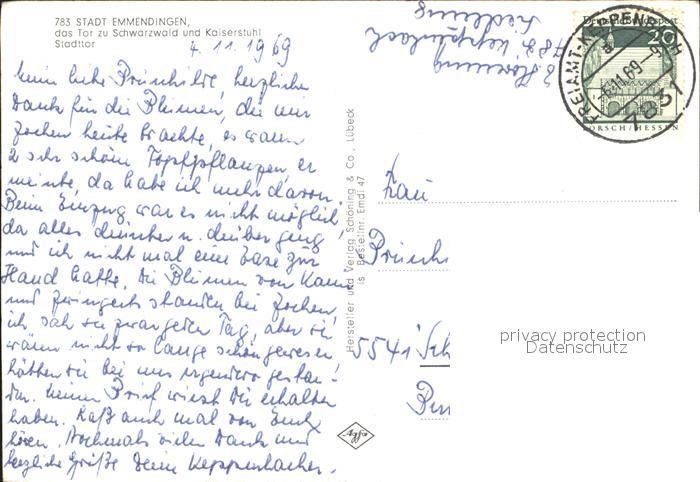 783 STADT EMMENDINGEN,
das Tor zu Schwarzwald und Kaiserstuhl
Stadttor
4.11.1969
Mein liebe Prinhilde, herzlichen
Dank für die Blumen, die mir
Jochen heute brachte, es waren
2 sehr schöne Topfpflanzen, er
meinte, da habe ich mehr davon.
Beim Einzug war es nicht möglich,
da alles drunter u. drüber ging
und ich nicht mal eine Vase zur
Hand hatte. Die Blumen von
und standen bei Jochen,
ich sah sie zwar jeden Tag, aber sie
wären nicht so lange schön gewesen
hätten sie bei uns irgendwo gestan-
den. Meinen Brief wirst Du erhalten
haben. Laß auch mal von Euch
hören. Nochmals vielen Dank und
herzliche Grüße Deine Keppenbacher.
Hersteller und Verlag Schöning & Co., Lübeck
is Bestellnr. Emdi 47
Agfa
Siedlung
783 Keppenbach
Deutsche Bundespost
20
LORSCH/HESSEN
FREIAMT-KEPPENBACH
a
-6.11.69-9
7831
Frau
Prinh
5541 Sch
privacy protection
Datenschutz